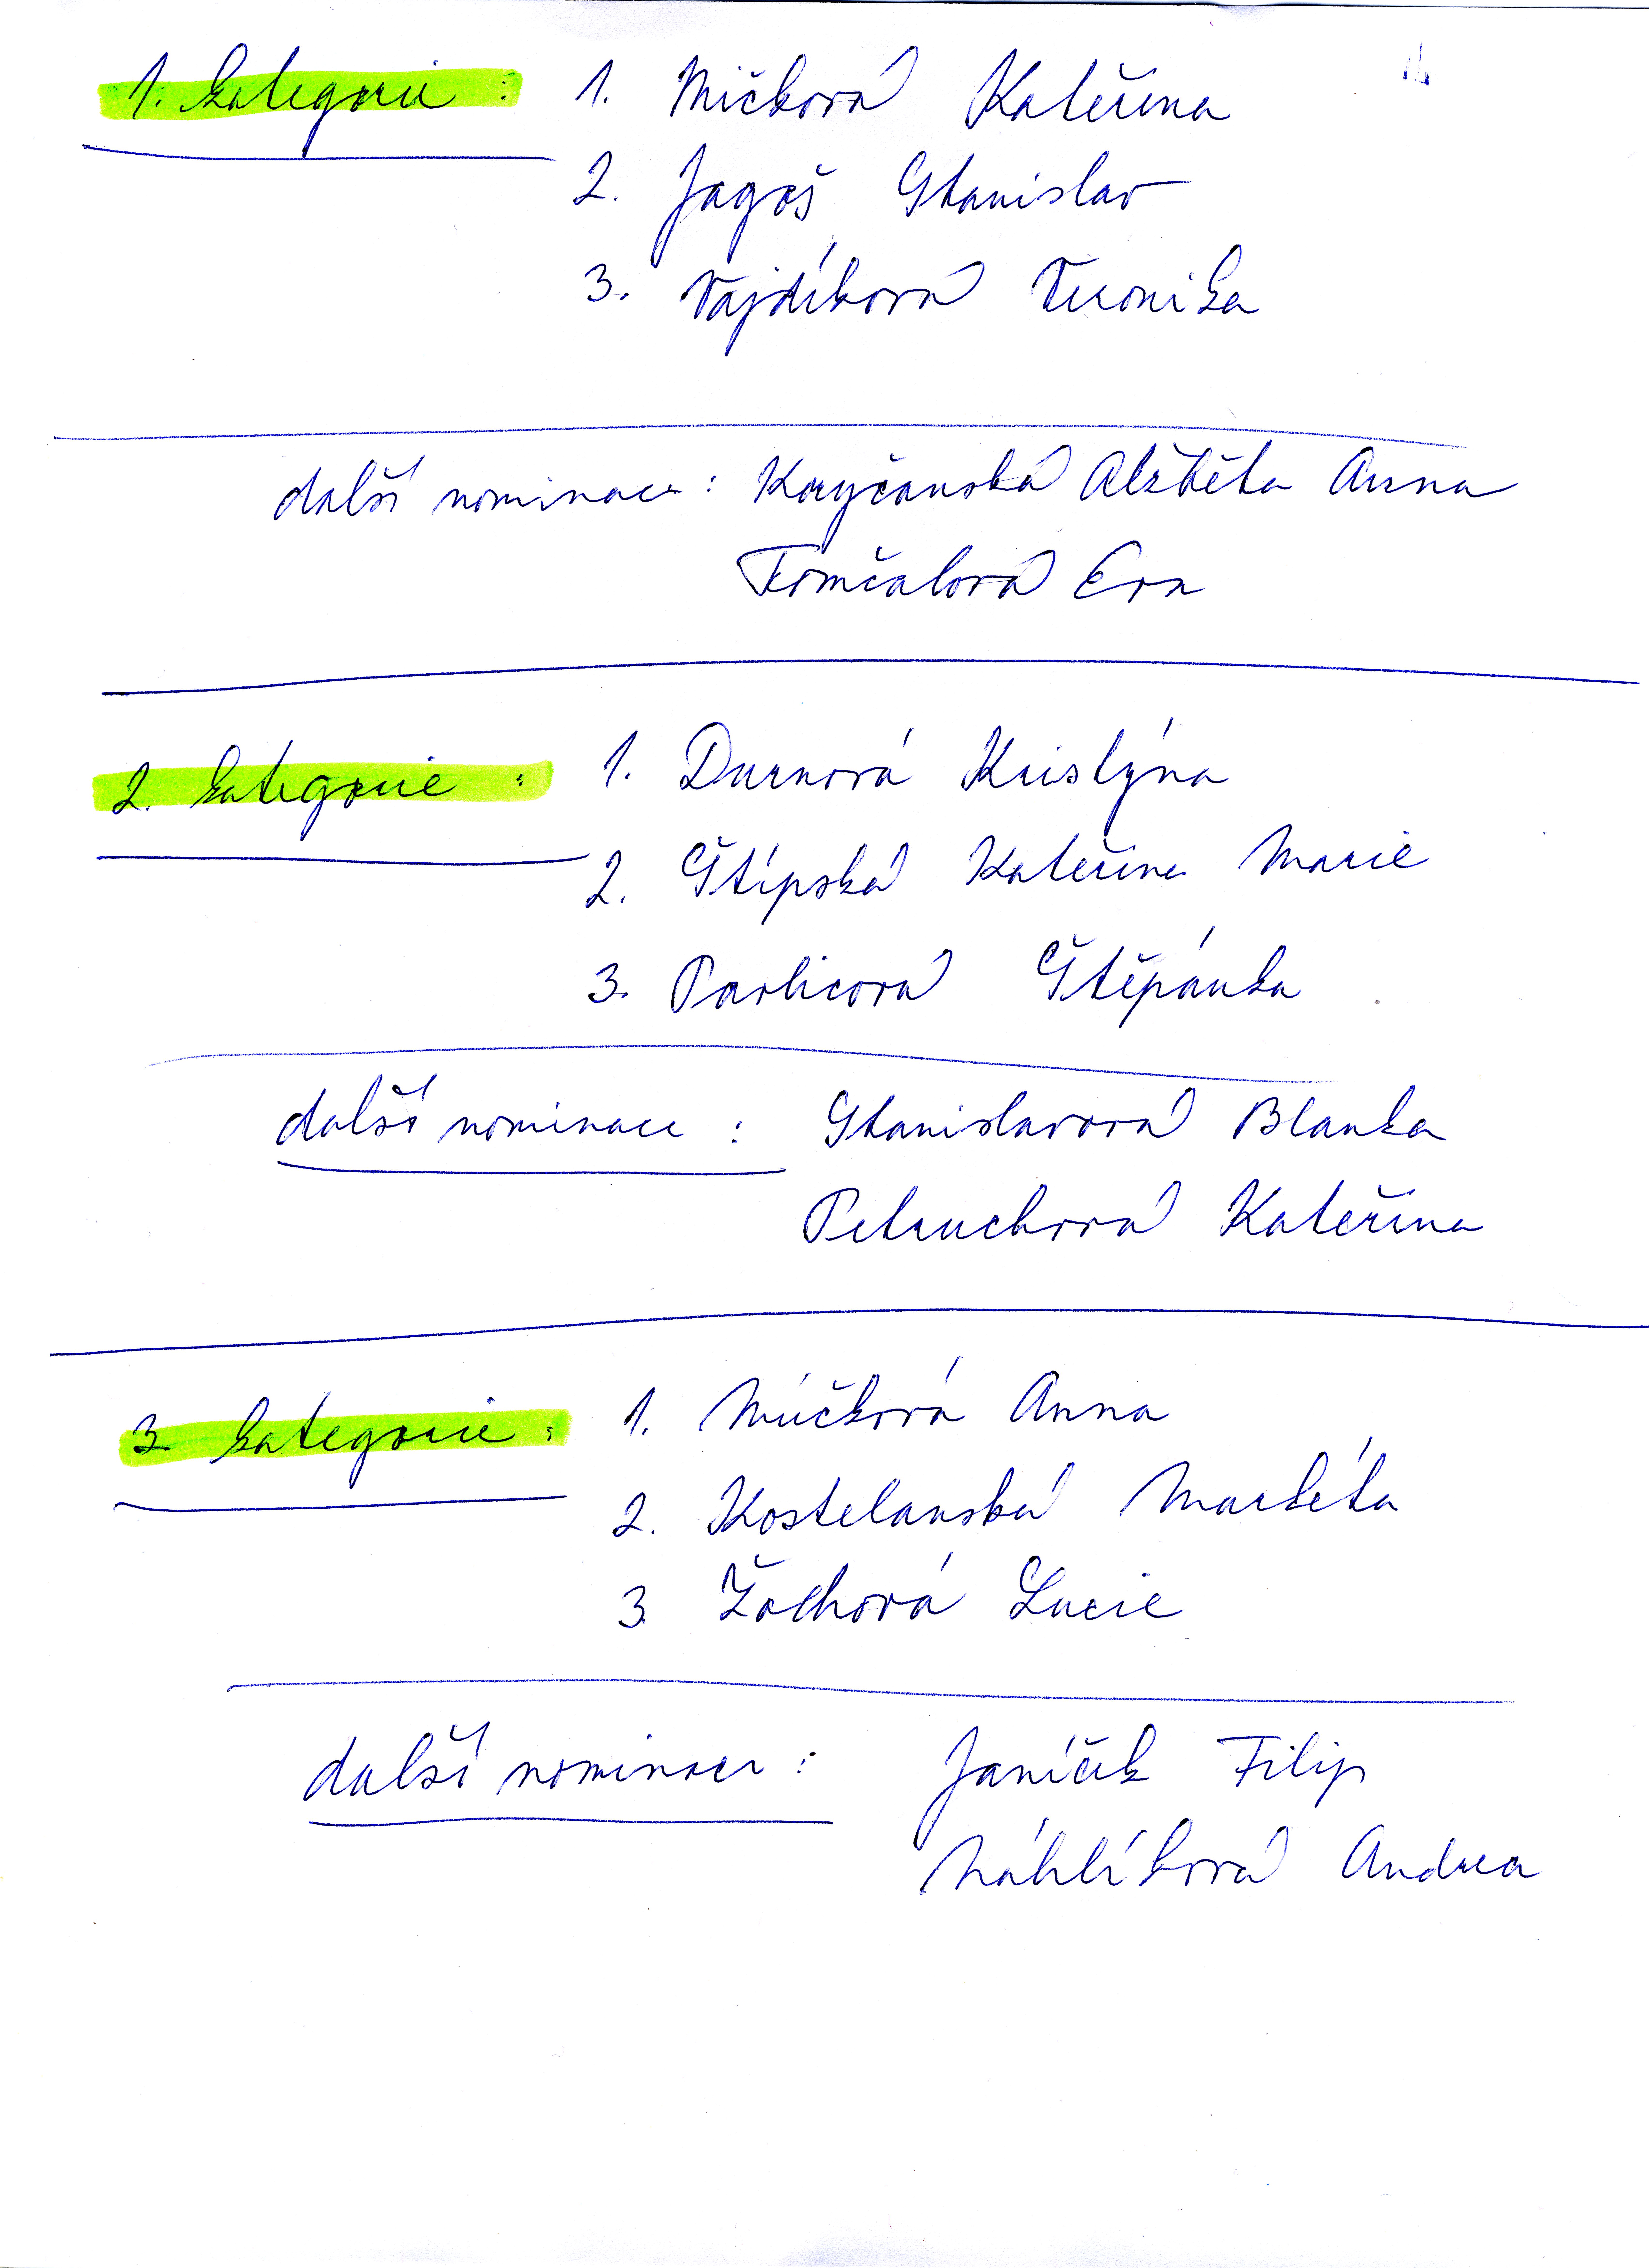 1. kategorie : 1. Mičková Kateřina
2. Jagoš Stanislav
3. Vajdíková Veronika
další nominace : Koryčanská Alžběta Anna
Tomčalová Eva
2. kategorie : 1. Durnová Kristýna
2. Štípská Kateřina Marie
3. Pavlicová Štěpánka
další nominace : Stanislavová Blanka
Petruchová Kateřina
3. kategorie : 1. Múčková Anna
2. Kostelanská Markéta
3 Žochová Lucie
další nominace : Janíček Filip
Náhlíková Andrea